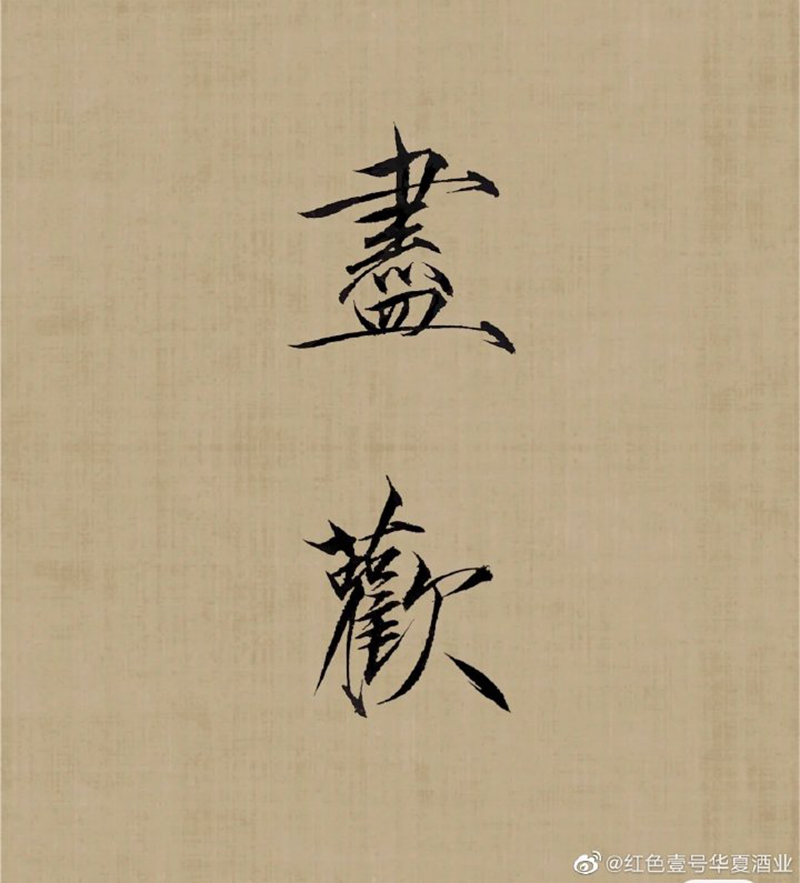 盡
歡
@红色壹号华夏酒业